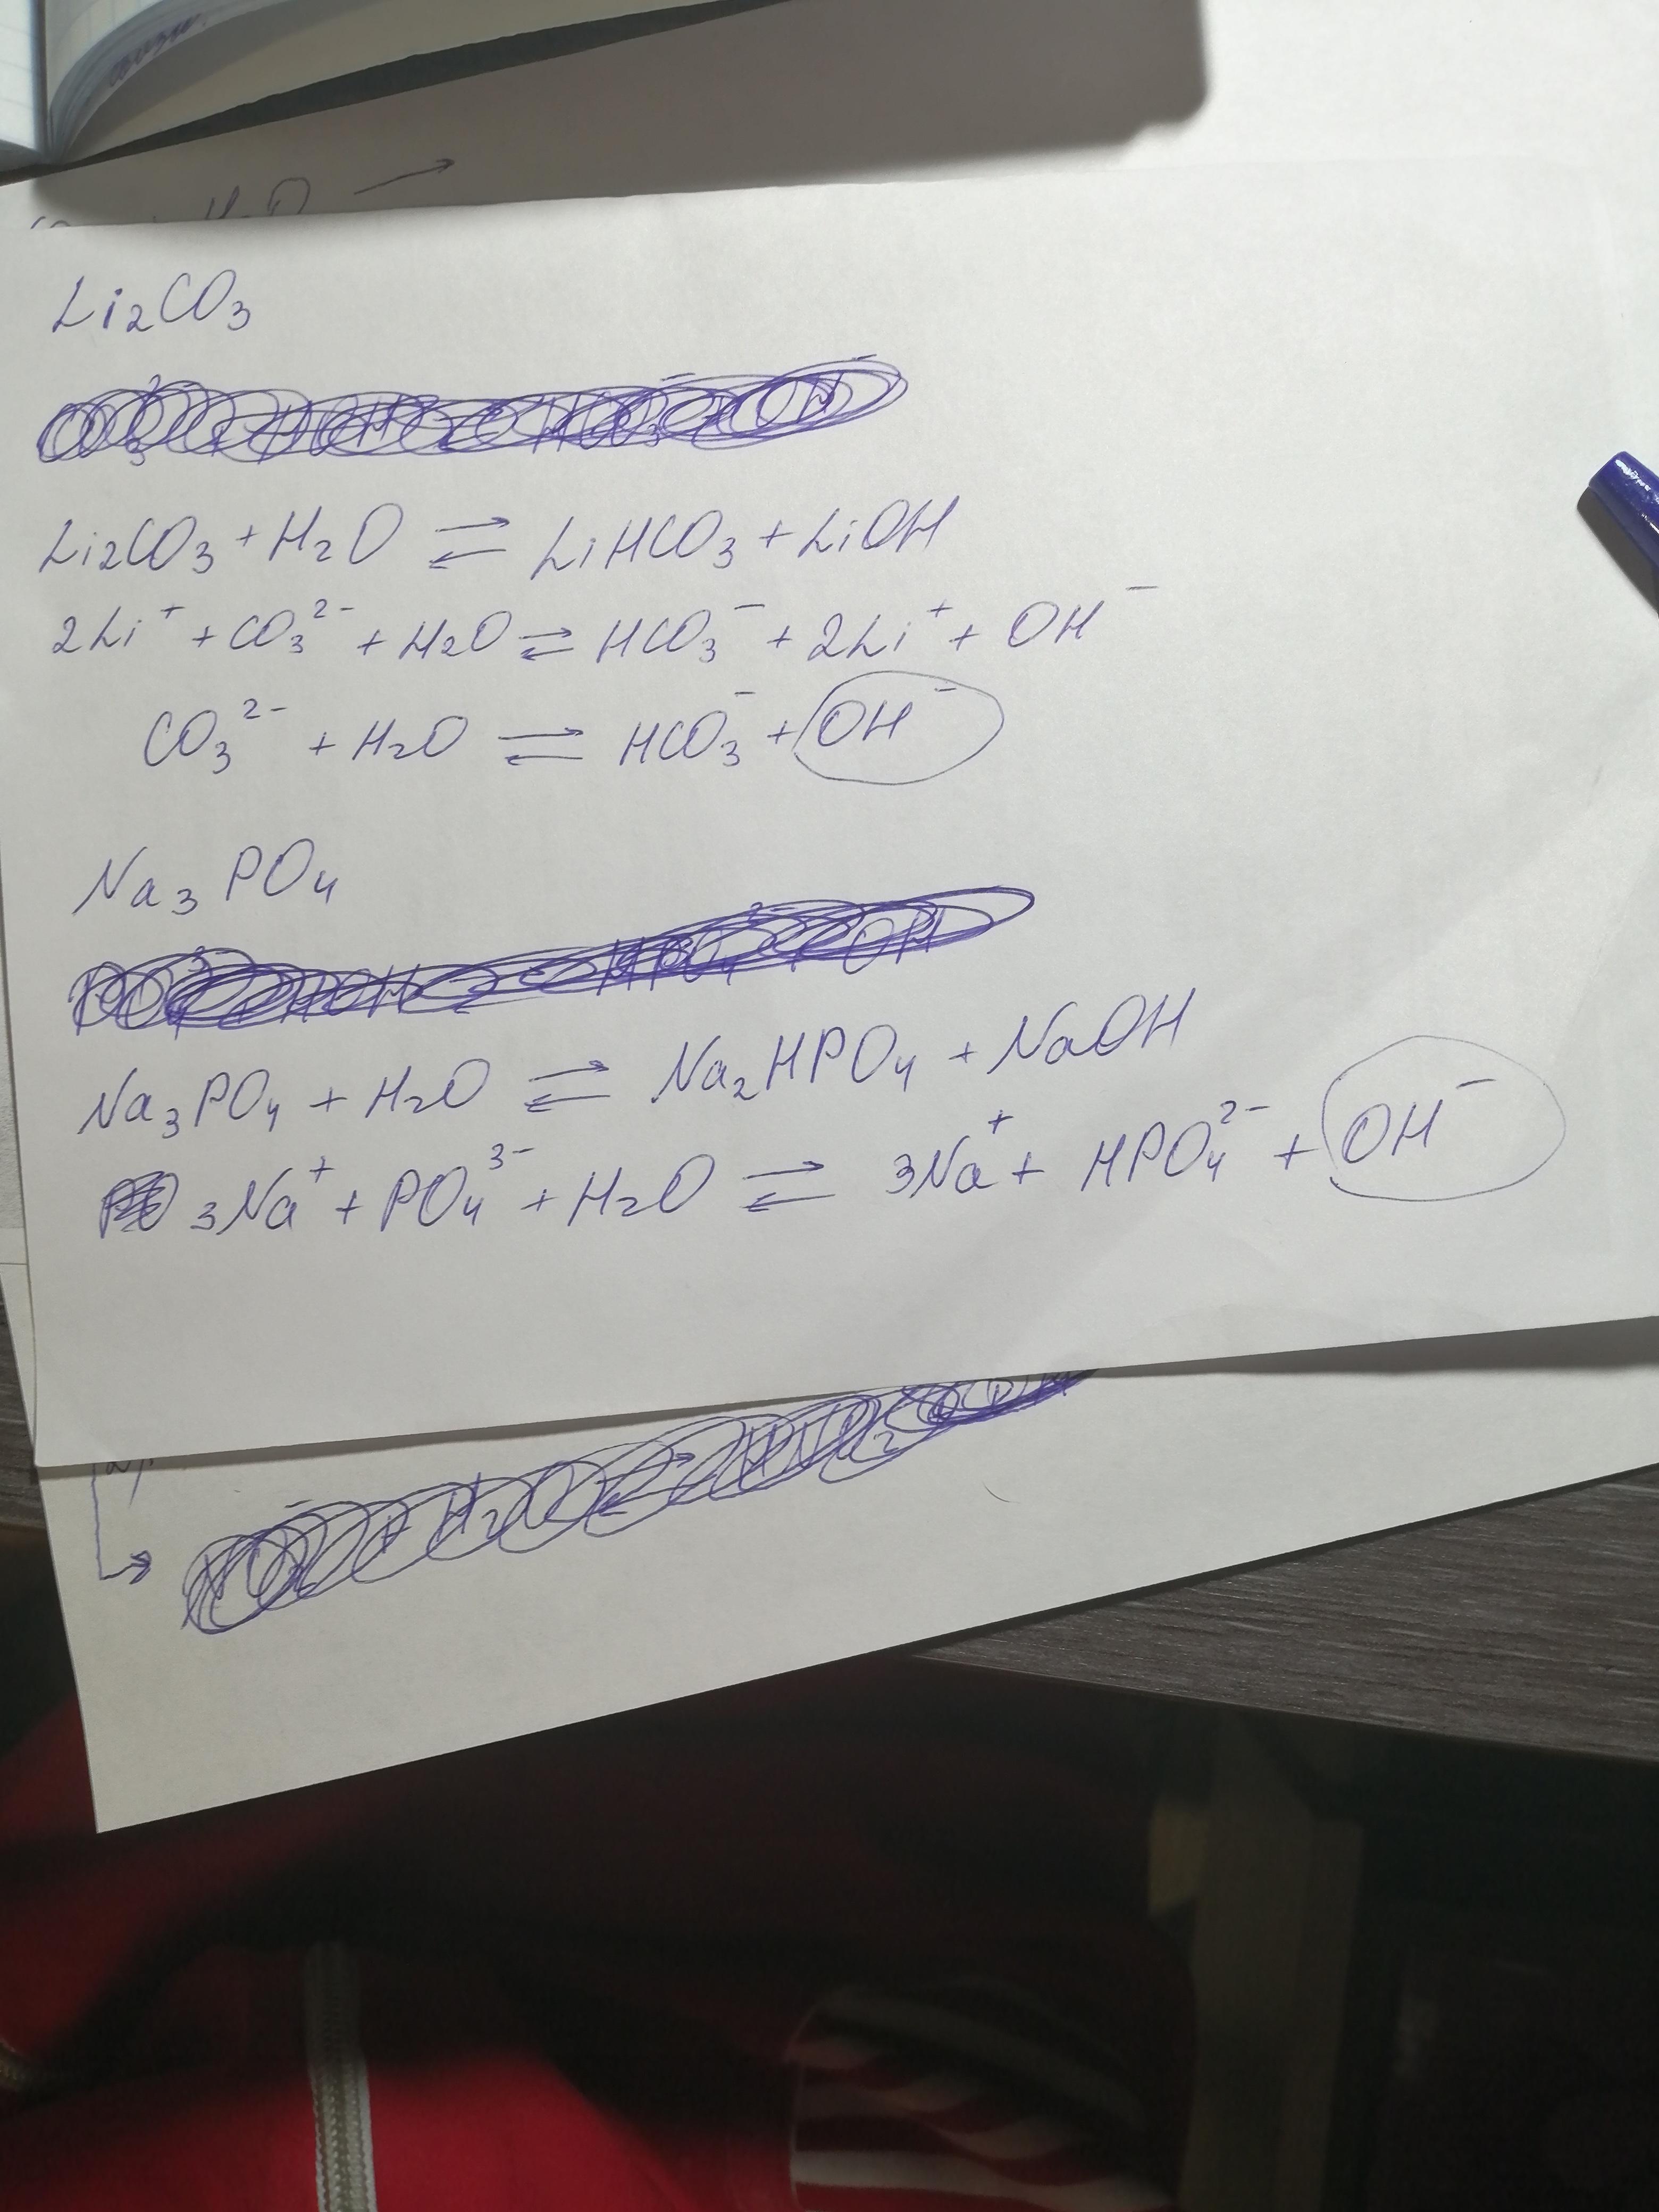 H₂O →
Li₂CO₃
Li₂CO₃ + H₂O ⇄ LiHCO₃ + LiOH
2Li⁺ + CO₃²⁻ + H₂O ⇄ HCO₃⁻ + 2Li⁺ + OH⁻
CO₃²⁻ + H₂O ⇄ HCO₃⁻ + OH⁻
Na₃PO₄
Na₃PO₄ + H₂O ⇄ Na₂HPO₄ + NaOH
3Na⁺ + PO₄³⁻ + H₂O ⇄ 3Na⁺ + HPO₄²⁻ + OH⁻